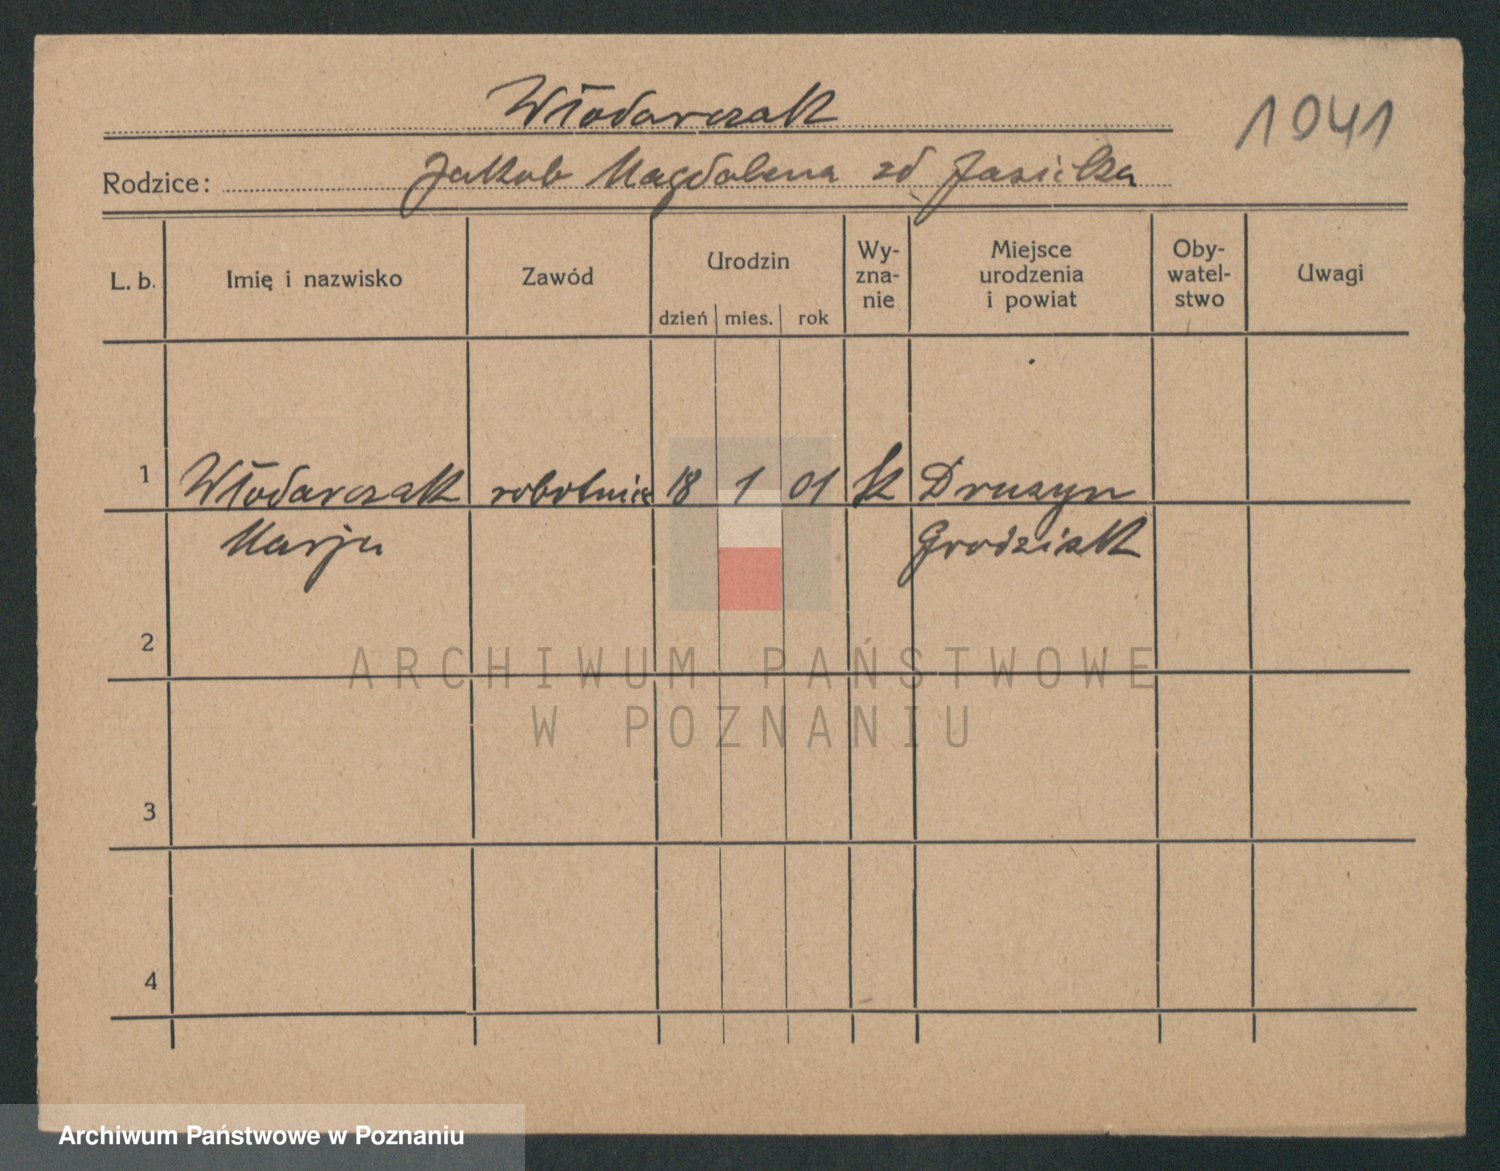 Włodarczak
1941
Rodzice: Jakob Magdalena zd Jasicka
L. b. Imię i nazwisko Zawód Urodzin dzień mies. rok Wy-zna-nie Miejsce urodzenia i powiat Oby-watel-stwo Uwagi
1 Włodarczak robotnic 18 1 01 k Druzyn
Marja Grodzisk
2
3
4
ARCHIWUM PAŃSTWOWE
W POZNANIU
Archiwum Państwowe w Poznaniu